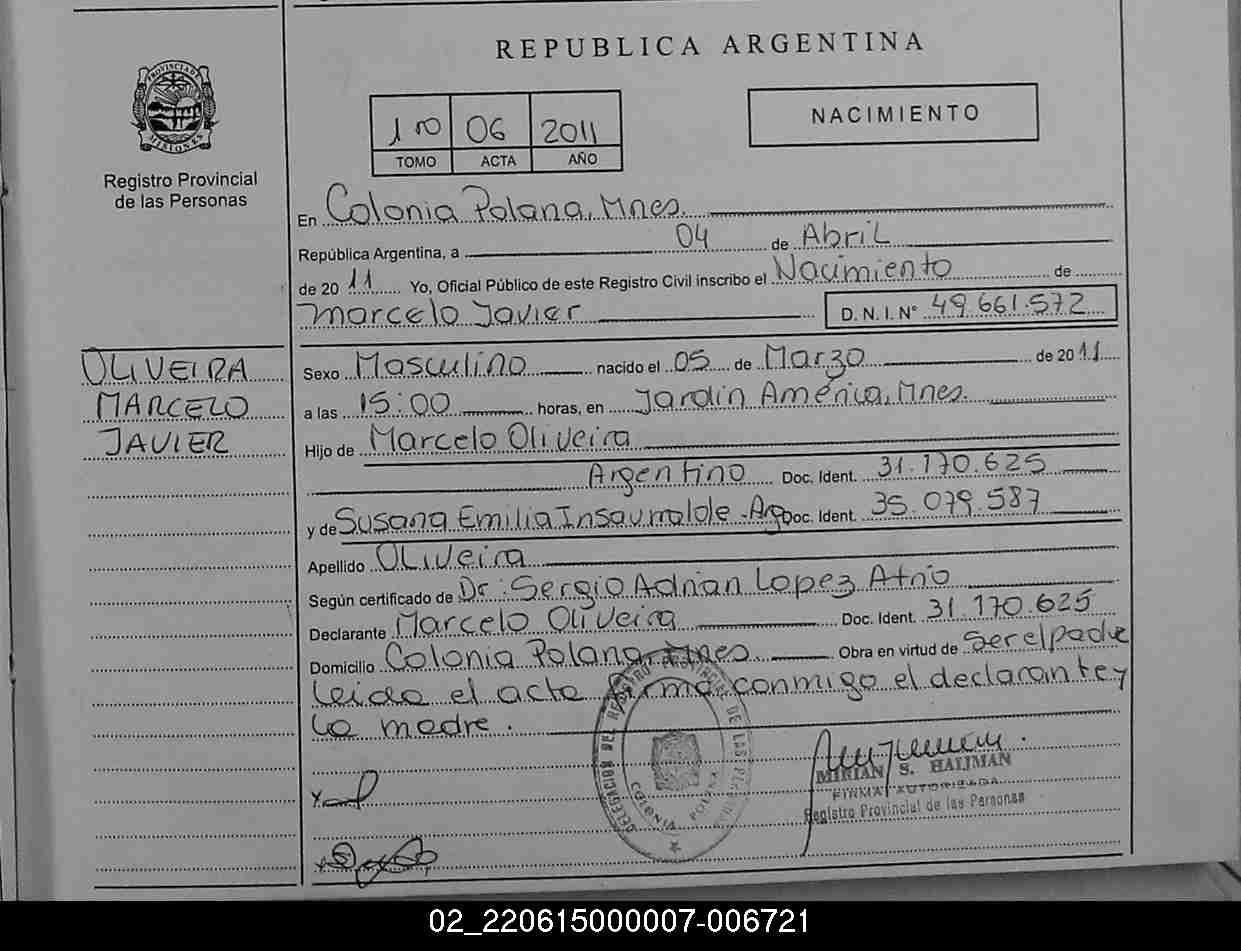 REPUBLICA ARGENTINA
PROVINCIA DE MISIONES
Registro Provincial
de las Personas
1ro 06 2011
TOMO ACTA AÑO
NACIMIENTO
En Colonia Polana, Mnes.
República Argentina, a 04 de Abril
de 2011 Yo, Oficial Público de este Registro Civil inscribo el Nacimiento de
Marcelo Javier D. N. I. N° 49.661.572
OLIVEIRA
MARCELO
JAVIER
Sexo Masculino nacido el 05 de Marzo de 2011
a las 15:00 horas, en Jardín América, Mnes.
Hijo de Marcelo Oliveira
Argentino Doc. Ident. 31.170.625
y de Susana Emilia Insaurralde - Arg Doc. Ident. 35.079.587
Apellido Oliveira
Según certificado de Dr. Sergio Adrian Lopez Atrio
Declarante Marcelo Oliveira Doc. Ident. 31.170.625
Domicilio Colonia Polana, Mnes Obra en virtud de Ser el padre
Leida el acta firma conmigo el declarante y
la madre.
DELEGACION DEL REGISTRO PROVINCIAL DE LAS PERSONAS
COLONIA POLANA
MIRIAN S. HALJMAN
FIRMA AUTORIZADA
Registro Provincial de las Personas
02_220615000007-006721